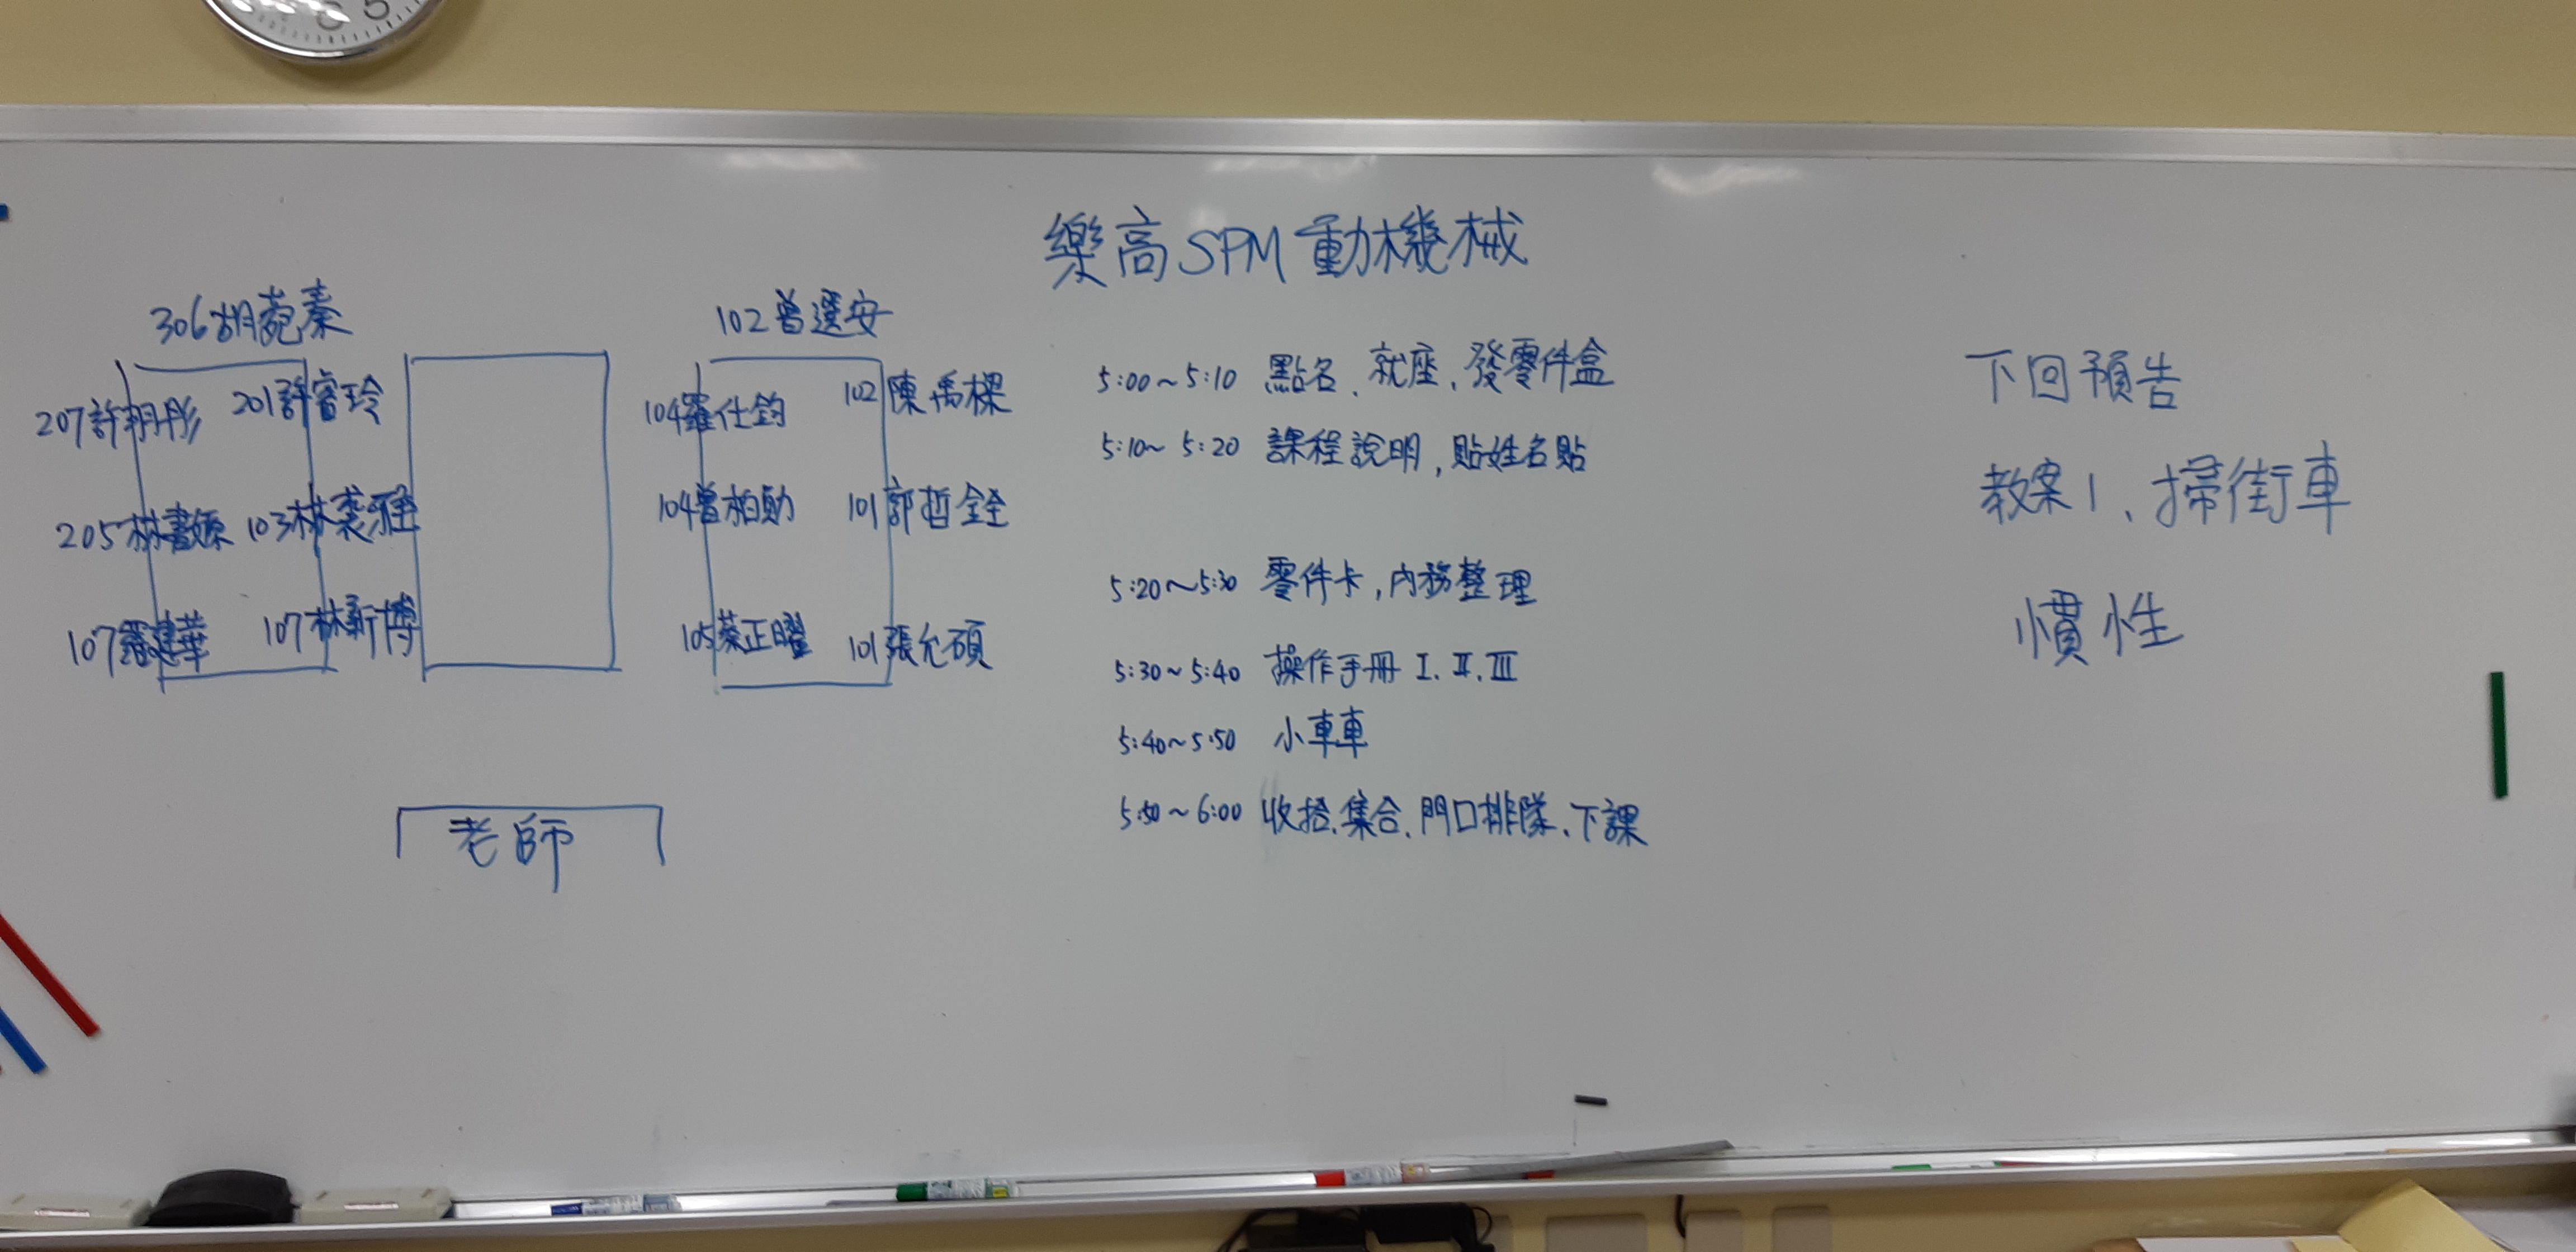 樂高SPM動機械
306胡菀蓁
207許栩彤 201許睿玲
205林書嫄 103林裘雅
107羅建華 107林新博
102曾選安
104羅仕鈞 102陳禹樑
104曾柏勛 101郭哲銓
105蔡正曜 101張允碩
老師
5:00~5:10 點名、就座、發零件盒
5:10~5:20 課程說明,貼姓名貼
5:20~5:30 零件卡,內務整理
5:30~5:40 操作手冊 I.II.III
5:40~5:50 小車車
5:50~6:00 收拾、集合、門口排隊、下課
下回預告
教案1、掃街車
慣性